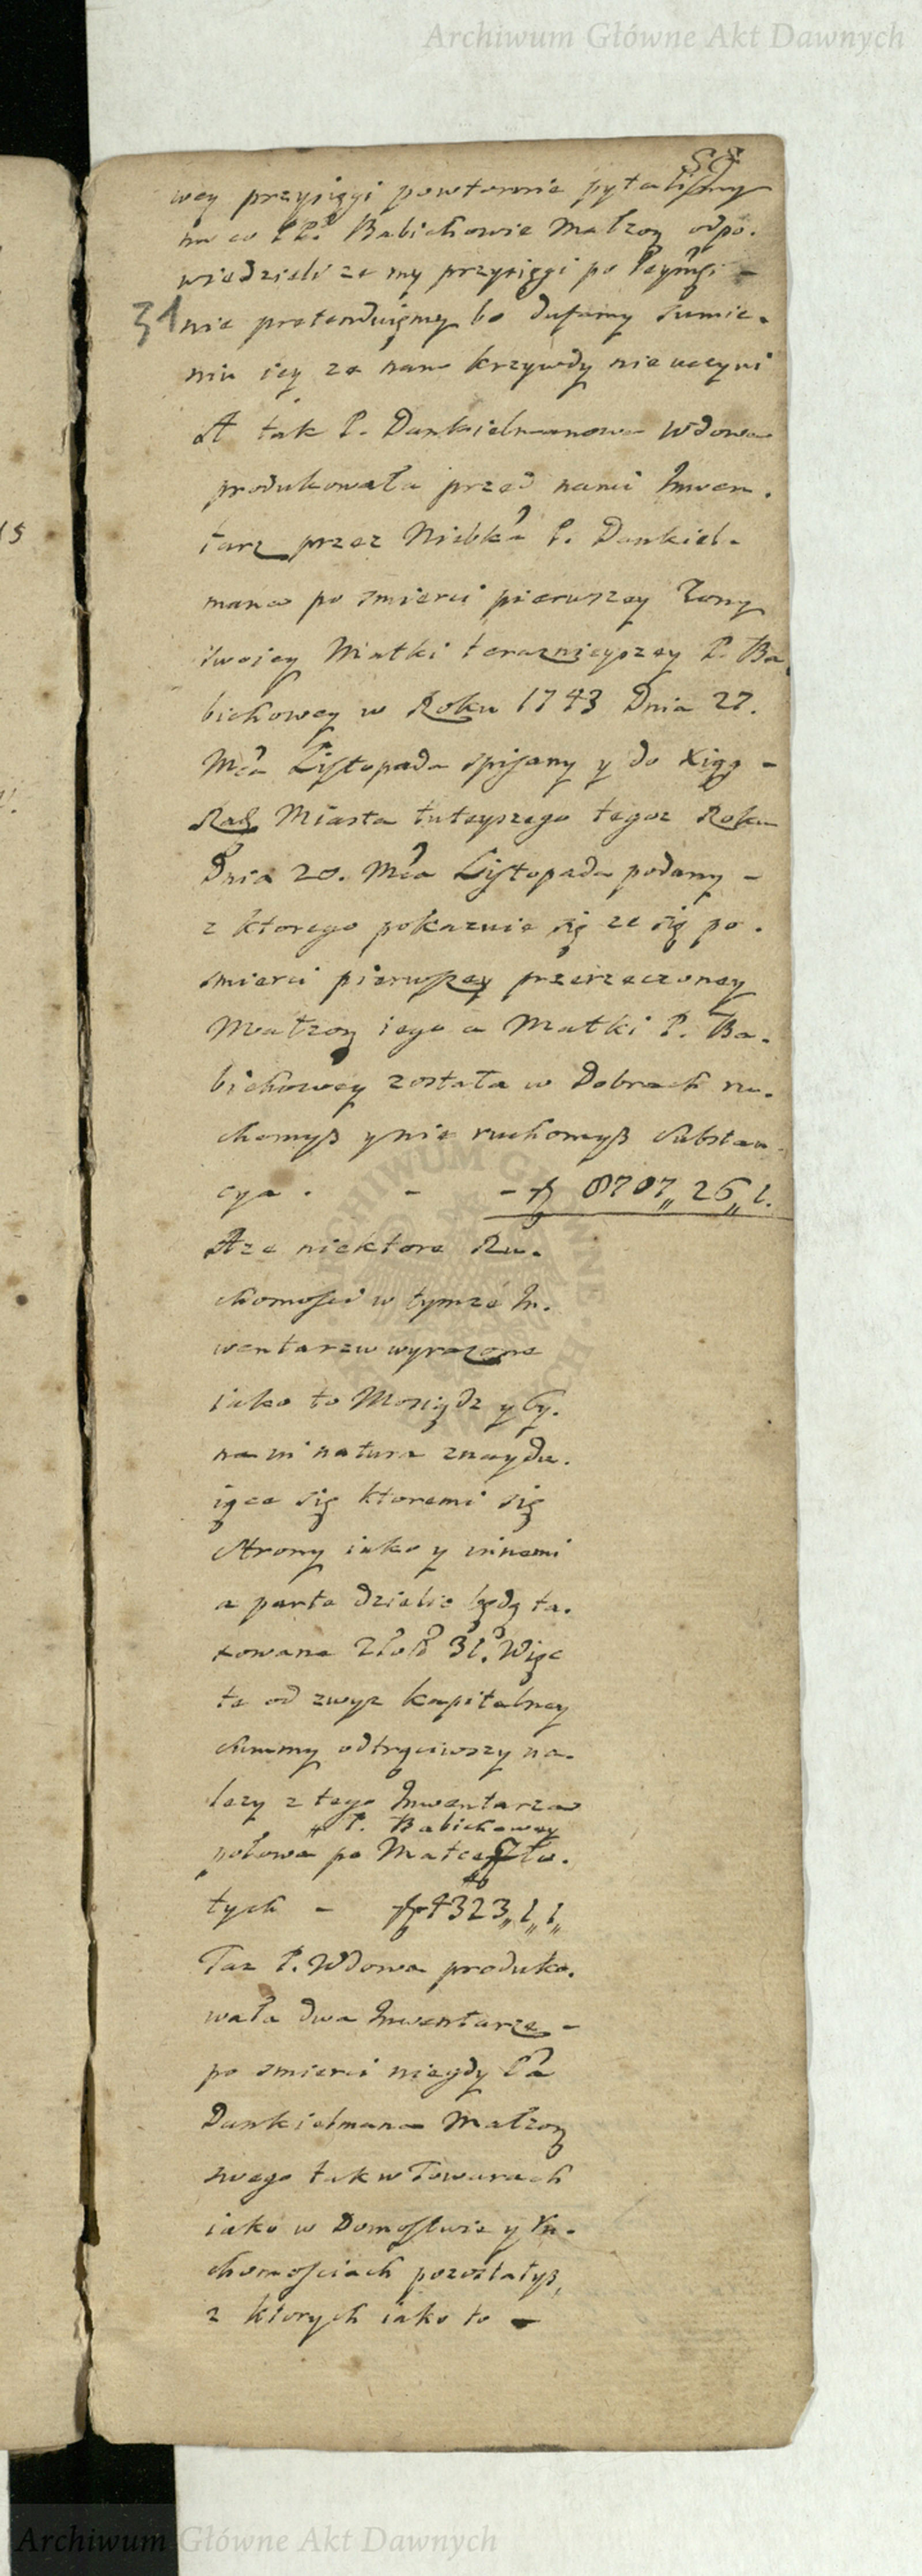 Archiwum Główne Akt Dawnych
wey przysięgi powtornie pytalismy
na co PP. Babichowie Małzon odpo.
wiedzieli ze my przysięgi po Jeymsci -
31 nie pretenduięmy bo dufamy sumie.
niu iey ze nam krzywdy nie uczyni
A tak P. Dankielmanowa Wdowa
produkowała przed nami Inwen.
tarz przez Niebka P. Dankiel.
mana po smierci pierwszey Zony
swoiey Matki teraznieyszey P. Ba
bichowey w Roku 1743 Dnia 27.
Mca Listopada spisany y do Xięg -
Rad Miasta tuteyszego tegoz Roku
Dnia 28. Mca Listopada podany -
z ktorego pokazuie się ze się po.
smierci pierwszey przerzeczoney
Małzon iego a Matki P. Ba.
bichowey została w Dobrach ru.
chomyß y nie ruchomyß Substan
cya . - - f 8707,, 26,, 1.
A ze niektore Ru.
chomosci w tymze In.
wentarzu wyrazone
iako to Mosiądz y Cy.
na in natura znaydu.
iące się ktoremi się
Strony iako y innemi
a parte dzielic będą ta.
xowane 31. Więc
te od zwyz kapitalney
Summy odtrąciwszy na.
lezy z tego Inwentarza
P. Babichowey
połowa po Matce Zło.
tych - f 4323,, 1,, 1,,
Taz P. Wdowa produko.
wała dwa Inwentarze -
po smierci niegdy Pa
Dankielmana Małzon
swego tak w Towarach
iako w Domostwie y Ru.
chomosciach pozostałyß,
z ktorych iako to -
Archiwum Główne Akt Dawnych